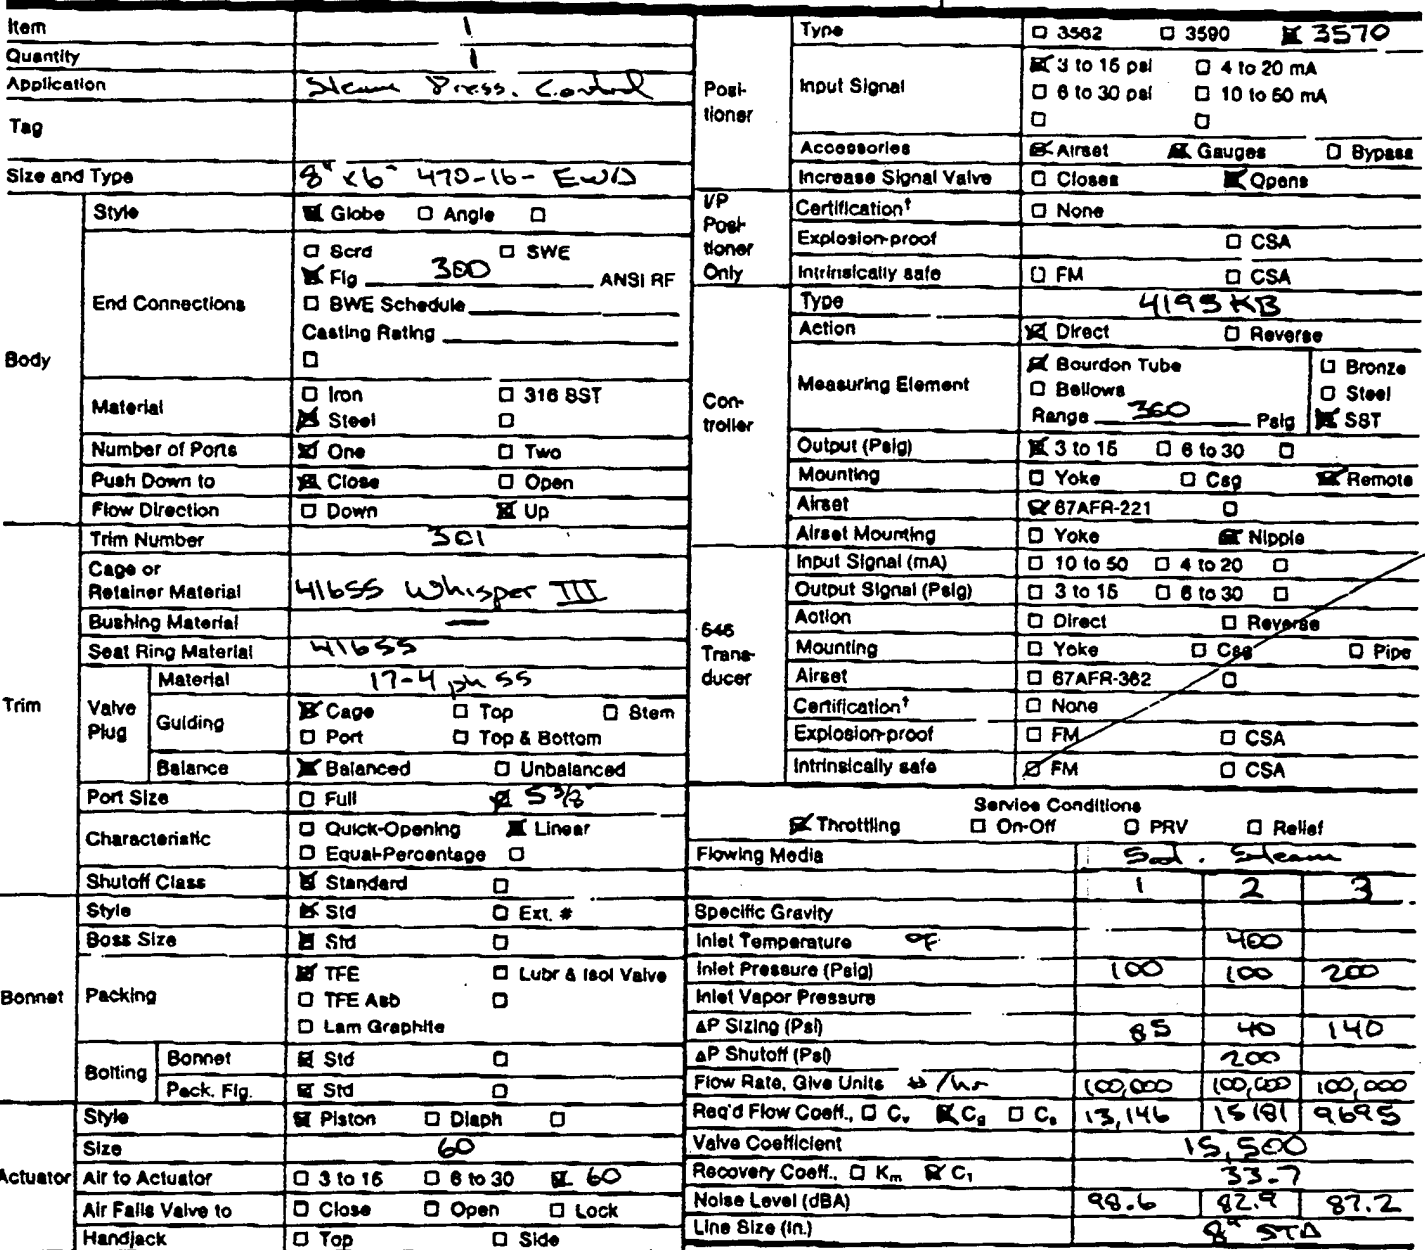 Item 1
Quantity 1
Application Steam Press. Control
Tag
Size and Type 8" x 6" 470-16- EWD
Body
Style ☒ Globe ☐ Angle ☐
End Connections ☐ Scrd ☐ SWE
☒ Flg 300 ANSI RF
☐ BWE Schedule
Casting Rating
☐
Material ☐ Iron ☐ 316 SST
☒ Steel ☐
Number of Ports ☒ One ☐ Two
Push Down to ☒ Close ☐ Open
Flow Direction ☐ Down ☒ Up
Trim
Trim Number 301
Cage or
Retainer Material 416SS Whisper III
Bushing Material —
Seat Ring Material 416SS
Valve Plug
Material 17-4 ph SS
Guiding ☒ Cage ☐ Top ☐ Stem
☐ Port ☐ Top & Bottom
Balance ☒ Balanced ☐ Unbalanced
Port Size ☐ Full ☒ 5 3/8"
Characteristic ☐ Quick-Opening ☒ Linear
☐ Equal-Percentage ☐
Shutoff Class ☒ Standard ☐
Bonnet
Style ☒ Std ☐ Ext. #
Boss Size ☒ Std ☐
Packing ☒ TFE ☐ Lubr & Isol Valve
☐ TFE Asb ☐
☐ Lam Graphite
Bolting
Bonnet ☒ Std ☐
Pack. Flg. ☒ Std ☐
Actuator
Style ☒ Piston ☐ Diaph ☐
Size 60
Air to Actuator ☐ 3 to 15 ☐ 6 to 30 ☒ 60
Air Fails Valve to ☐ Close ☐ Open ☐ Lock
Handjack ☐ Top ☐ Side
Posi-
tioner
Type ☐ 3582 ☐ 3590 ☒ 3570
Input Signal ☒ 3 to 15 psi ☐ 4 to 20 mA
☐ 6 to 30 psi ☐ 10 to 50 mA
☐ ☐
Accessories ☒ Airset ☒ Gauges ☐ Bypass
Increase Signal Valve ☐ Closes ☒ Opens
I/P
Posi-
tioner
Only
Certification† ☐ None
Explosion-proof ☐ CSA
Intrinsically safe ☐ FM ☐ CSA
Con-
troller
Type 4195KB
Action ☒ Direct ☐ Reverse
Measuring Element ☒ Bourdon Tube ☐ Bronze
☐ Bellows ☐ Steel
Range 360 Psig ☒ SST
Output (Psig) ☒ 3 to 15 ☐ 6 to 30 ☐
Mounting ☐ Yoke ☐ Csg ☒ Remote
Airset ☒ 67AFR-221 ☐
Airset Mounting ☐ Yoke ☒ Nipple
546
Trans-
ducer
Input Signal (mA) ☐ 10 to 50 ☐ 4 to 20 ☐
Output Signal (Psig) ☐ 3 to 15 ☐ 6 to 30 ☐
Action ☐ Direct ☐ Reverse
Mounting ☐ Yoke ☐ Csg ☐ Pipe
Airset ☐ 67AFR-362 ☐
Certification† ☐ None
Explosion-proof ☐ FM ☐ CSA
Intrinsically safe ☐ FM ☐ CSA
Service Conditions
☒ Throttling ☐ On-Off ☐ PRV ☐ Relief
Flowing Media Sat. Steam
1 2 3
Specific Gravity
Inlet Temperature °F 400
Inlet Pressure (Psig) 100 100 200
Inlet Vapor Pressure
ΔP Sizing (Psi) 85 40 140
ΔP Shutoff (Psi) 200
Flow Rate, Give Units #/hr 100,000 100,000 100,000
Req'd Flow Coeff., ☐ Cv ☒ Cg ☐ Cs 13,146 15181 9695
Valve Coefficient 15,500
Recovery Coeff., ☐ Km ☒ C1 33.7
Noise Level (dBA) 98.6 82.9 87.2
Line Size (In.) 8" STD